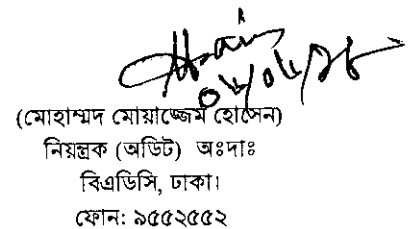 (মোহাম্মদ মোয়াজ্জেম হোসেন)
নিয়ন্ত্রক (অডিট) অঃদাঃ
বিএডিসি, ঢাকা।
ফোন: ৯৫৫২৫৫২